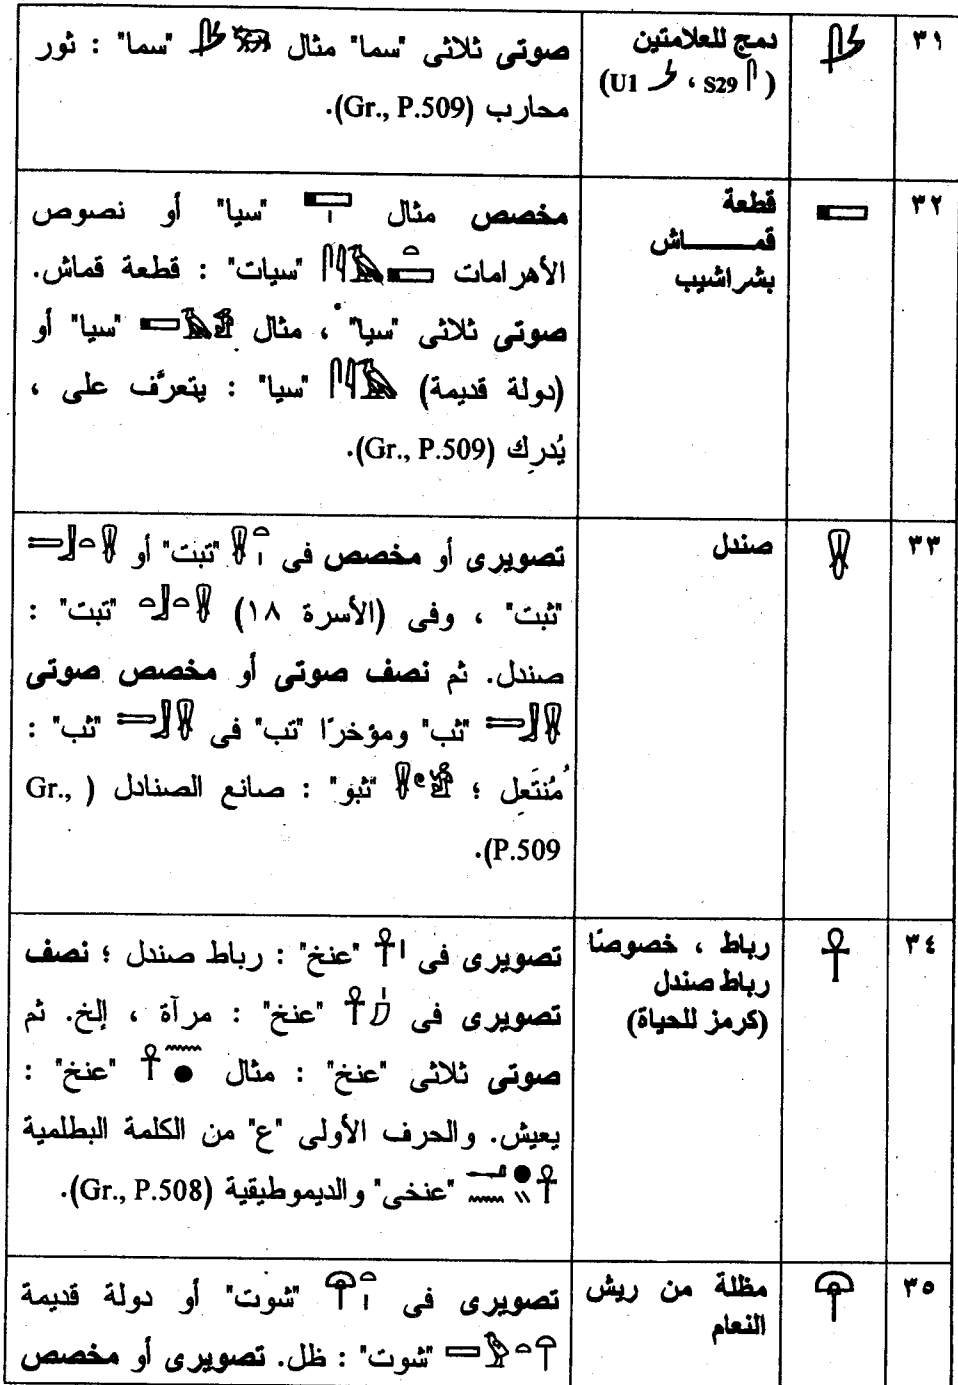 ٣١
دمج للعلامتين
(S29 𓋴 ، U1 𓌳)
صوتى ثلاثى "سما" مثال "سما" : ثور
محارب (Gr., P.509).
٣٢
قطعة
قمـــــاش
بشراشيب
مخصص مثال "سيا" أو نصوص
الأهرامات "سيات" : قطعة قماش.
صوتى ثلاثى "سيا" ، مثال "سيا" أو
(دولة قديمة) "سيا" : يتعرَّف على ،
يُدرك (Gr., P.509).
٣٣
صندل
𓋸
تصويرى أو مخصص فى "تبت" أو
"ثبت" ، وفى (الأسرة ١٨) "تبت" :
صندل. ثم نصف صوتى أو مخصص صوتى
"ثب" ومؤخرًا "تب" فى "ثب" :
مُنتَعِل ؛ "ثبو" : صانع الصنادل (Gr.,
P.509).
٣٤
رباط ، خصوصًا
رباط صندل
(كرمز للحياة)
𓋹
تصويرى فى 𓋹𓏤 "عنخ" : رباط صندل ؛ نصف
تصويرى فى "عنخ" : مرآة ، إلخ. ثم
صوتى ثلاثى "عنخ" : مثال 𓋹𓈖𓐍 "عنخ" :
يعيش. والحرف الأولى "ع" من الكلمة البطلمية
"عنخى" والديموطيقية (Gr., P.508).
٣٥
مظلة من ريش
النعام
𓋺
تصويرى فى 𓋺𓏏𓏤 "شوت" أو دولة قديمة
"شوت" : ظل. تصويرى أو مخصص